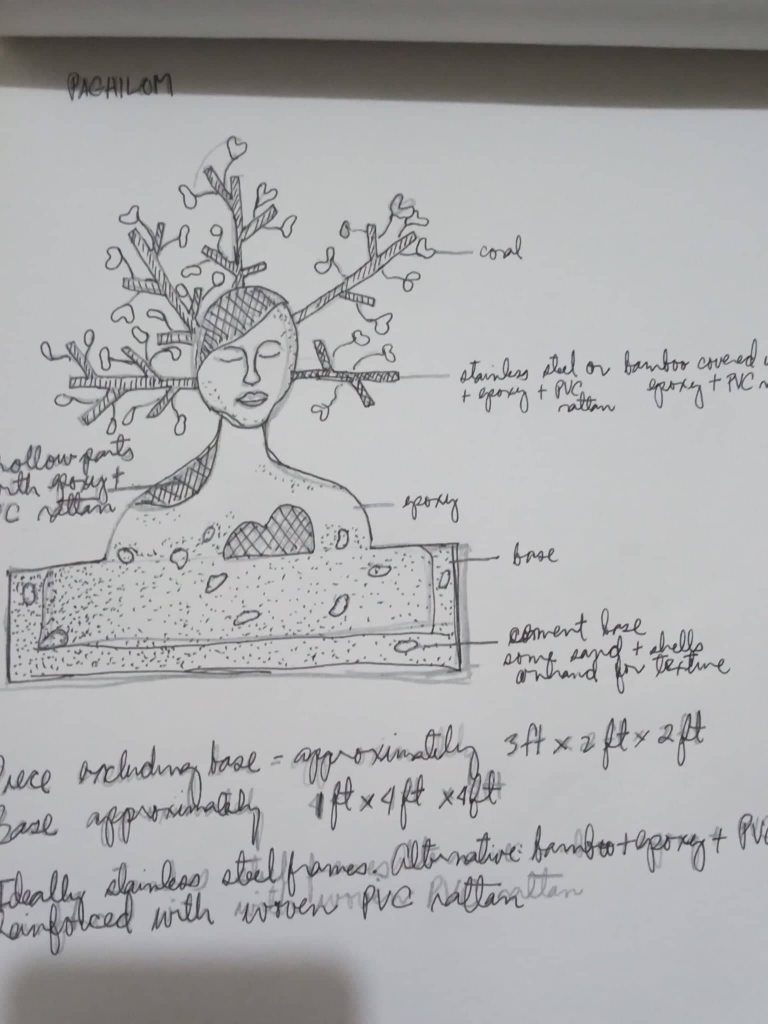 PAGHILOM
coral
stainless steel or bamboo covered
+ epoxy + PVC epoxy + PVC
rattan
hollow parts
with epoxy +
rattan
epoxy
base
cement base
some sand + shells
onhand for texture
Piece excluding base = approximately 3ft x 2ft x 2ft
Base approximately 1ft x 4ft x 4ft
Ideally stainless steel frames. Alternative: bamboo + epoxy + PVC
Reinforced with woven PVC rattan